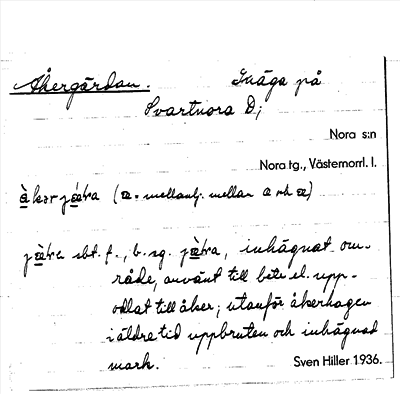 Åkergärdan. Inäga på
Svartnora D;
Nora s:n
Nora tg., Västernorrl. l.
àkərjæ̀ra (æ = mellanlj. mellan a och æ)
jæ̀ra sbt. f., b. sg. jæ̀ra, inhägnat om-
råde, använt till bete el. upp-
odlat till åker; utanför åkerhagen
i äldre tid uppbruten och inhägnad
mark. Sven Hiller 1936.